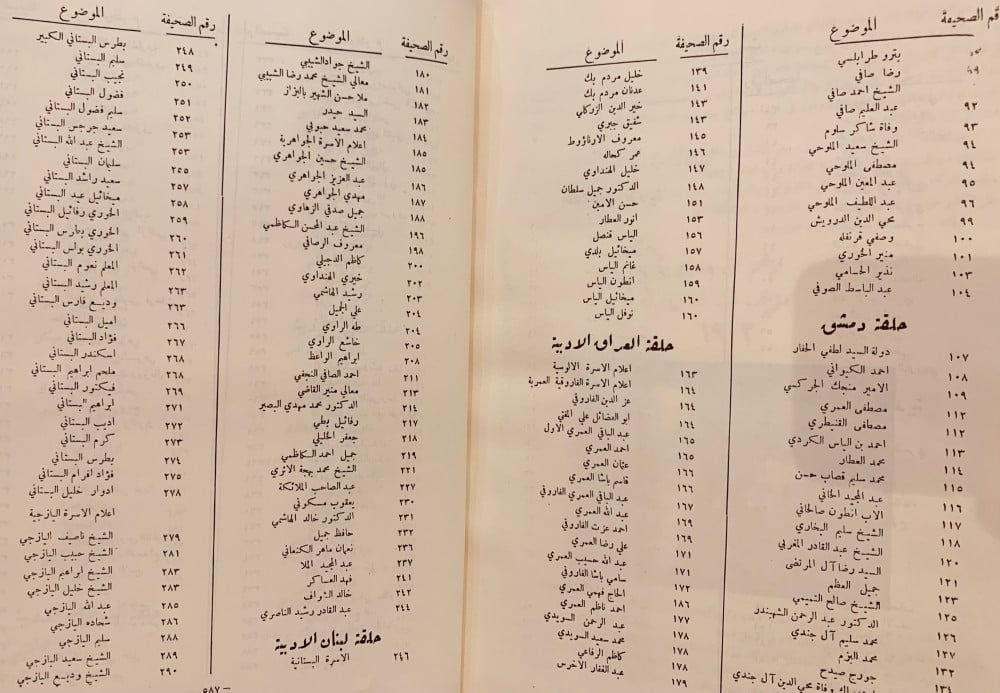 رقم الصحيفة
الموضوع
بترو طرابلسي
رضا صافي
الشيخ احمد صافي
٩٢ عبد العليم صافي
٩٣ وفاة شاكر سلوم
٩٤ الشيخ سعيد الملوحي
٩٤ مصطفى الملوحي
٩٥ عبد المعين الملوحي
٩٦ عبد اللطيف الملوحي
٩٩ محي الدين الدرويش
١٠٠ وصفي قرنفله
١٠١ منير الخوري
١٠٣ نذير الحسامي
١٠٤ عبد الباسط الصوفي
حلقة دمشق
١٠٧ دولة السيد لطفي الحفار
١٠٨ احمد الكيواني
١٠٩ الامير منجك الجركسي
١١٢ مصطفى العمري
١١٢ مصطفى القنيطري
١١٣ احمد بن الياس الكردي
١١٤ محمد العطار
١١٥ محمد سليم قصاب حسن
١١٦ عبد المجيد الخاني
١١٧ الاب انطون صالحاني
١١٨ الشيخ سليم البخاري
١٢٠ الشيخ عبد القادر المغربي
١٢١ السيد رضا آل المرتضى
١٢٣ جميل العظم
١٢٥ الشيخ صالح التميمي
١٢٦ الدكتور عبد الرحمن الشهبندر
١٢٧ محمد سليم آل جندي
١٣٢ محمد البزم
١٣٤ جورج صيدح
وفاة محي الدين آل جندي
رقم الصحيفة
الموضوع
١٣٩ خليل مردم بك
١٤١ عدنان مردم بك
١٤٣ خير الدين الزركلي
١٤٣ شفيق جبري
١٤٥ معروف الارناؤوط
١٤٦ عمر كحاله
١٤٧ خليل الهنداوي
١٤٨ الدكتور جميل سلطان
١٥١ حسن الامين
١٥٣ انور العطار
١٥٦ الياس قنصل
١٥٧ ميخائيل بلدي
١٥٨ غانم الياس
١٥٩ انطون الياس
١٦٠ ميخائيل الياس
١٦٠ نوفل الياس
حلقة العراق الادبية
١٦٣ اعلام الاسرة الالوسية
١٦٤ اعلام الاسرة الفاروقية العمرية
١٦٤ عز الدين الفاروقي
١٦٤ ابو الفضائل علي المفتي
١٦٥ عبد الباقي العمري الاول
١٦٥ احمد العمري
١٦٦ عثمان العمري
١٦٦ قاسم باشا العمري
١٦٧ عبد الباقي العمري الفاروقي
١٦٩ عبد الله العمري
١٦٩ احمد عزت الفاروقي
١٧١ علي رضا العمري
١٧١ عبد الله حسيب العمري
١٧٢ سامي باشا الفاروقي
١٨٦ الحاج فهمي العمري
١٧٧ احمد ناظم العمري
١٧٨ عبد الرحمن السويدي
١٧٨ محمد سعيد السويدي
١٧٨ كاظم الرفاعي
١٧٩ عبد الغفار الاخرس
رقم الصحيفة
الموضوع
١٨٠ الشيخ جواد الشبيبي
١٨١ معالي الشيخ محمد رضا الشبيبي
١٨٢ ملا حسن الشهير بالبزاز
١٨٣ السيد حيدر
١٨٤ محمد سعيد حبوبي
١٨٥ اعلام الاسرة الجواهرية
١٨٥ الشيخ حسين الجواهري
١٨٦ عبد العزيز الجواهري
١٨٧ مهدي الجواهري
١٨٨ جميل صدقي الزهاوي
١٩٦ الشيخ عبد المحسن الكاظمي
١٩٨ معروف الرصافي
٢٠٠ كاظم الدجيلي
٢٠٢ خيري الهنداوي
٢٠٣ رشيد الهاشمي
٢٠٤ علي الجميل
٢٠٤ طه الراوي
٢٠٥ خاشع الراوي
٢٠٨ ابراهيم الواعظ
٢١١ احمد الصافي النجفي
٢١٣ معالي منير القاضي
٢١٤ الدكتور محمد مهدي البصير
٢١٧ رفائيل بطي
٢١٨ جعفر الخليلي
٢١٩ جميل احمد الكاظمي
٢٢١ الشيخ محمد بهجة الاثري
٢٢٧ عبد الصاحب الملائكة
٢٣٠ يعقوب مسكوني
٢٣١ الدكتور خالد الهاشمي
٢٣٢ حافظ جميل
٢٣٦ نعمان ماهر الكنعاني
٢٣٧ عبد المجيد الملا
٢٤١ فهد العساكر
٢٤٢ خالد الشواف
٢٤٤ عبد القادر رشيد الناصري
حلقة لبنان الادبية
٢٤٦ الاسرة البستانية
رقم الصحيفة
الموضوع
٢٤٨ بطرس البستاني الكبير
٢٤٩ سليم البستاني
٢٥٠ نجيب البستاني
٢٥١ فضول البستاني
٢٥٢ سليم فضول البستاني
٢٥٣ سعيد جرجس البستاني
٢٥٣ الشيخ عبد الله البستاني
٢٥٥ سليمان البستاني
٢٥٧ سعيد راشد البستاني
٢٥٨ ميخائيل عيد البستاني
٢٥٩ الخوري رفائيل البستاني
٢٦٠ الخوري بطرس البستاني
٢٦١ الخوري بولس البستاني
٢٦٢ المعلم نعوم البستاني
٢٦٣ المعلم رشيد البستاني
٢٦٣ وديع فارس البستاني
٢٦٦ اميل البستاني
٢٦٧ فؤاد البستاني
٢٦٨ اسكندر البستاني
٢٦٨ ملحم ابراهيم البستاني
٢٦٩ فيكتور البستاني
٢٧١ ابراهيم البستاني
٢٧٢ اديب البستاني
٢٧٣ كرم البستاني
٢٧٤ بطرس البستاني
٢٧٥ فؤاد افرام البستاني
٢٧٨ ادوار خليل البستاني
اعلام الاسرة اليازجية
٢٧٩ الشيخ ناصيف اليازجي
٢٨١ الشيخ حبيب اليازجي
٢٨٣ الشيخ ابراهيم اليازجي
٢٨٣ الشيخ خليل اليازجي
٢٨٥ عبد الله اليازجي
٢٨٦ شحاده اليازجي
٢٨٨ سليم اليازجي
٢٨٩ الشيخ سعيد اليازجي
٢٩٠ الشيخ وديع اليازجي
٥٨٧ –